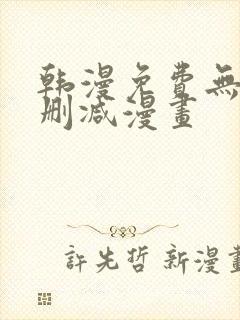 韩漫免費無
刪减漫畫
許先哲 新漫畫